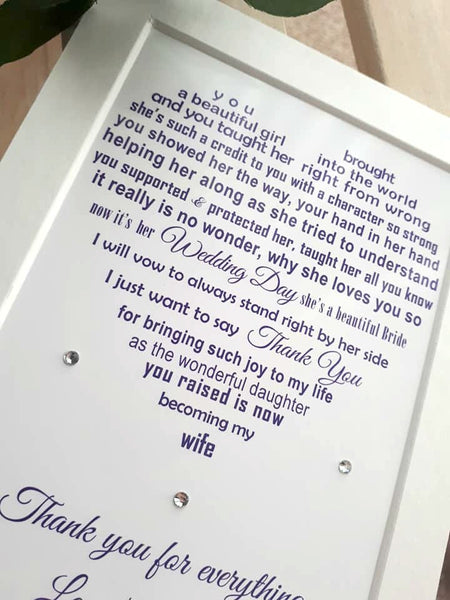 you brought
a beautiful girl into the world
and you taught her right from wrong
she's such a credit to you with a character so strong
you showed her the way, your hand in her hand
helping her along as she tried to understand
you supported & protected her, taught her all you know
it really is no wonder, why she loves you so
now it's her Wedding Day she's a beautiful Bride
I will vow to always stand right by her side
I just want to say Thank You
for bringing such joy to my life
as the wonderful daughter
you raised is now
becoming my
wife
Thank you for everything